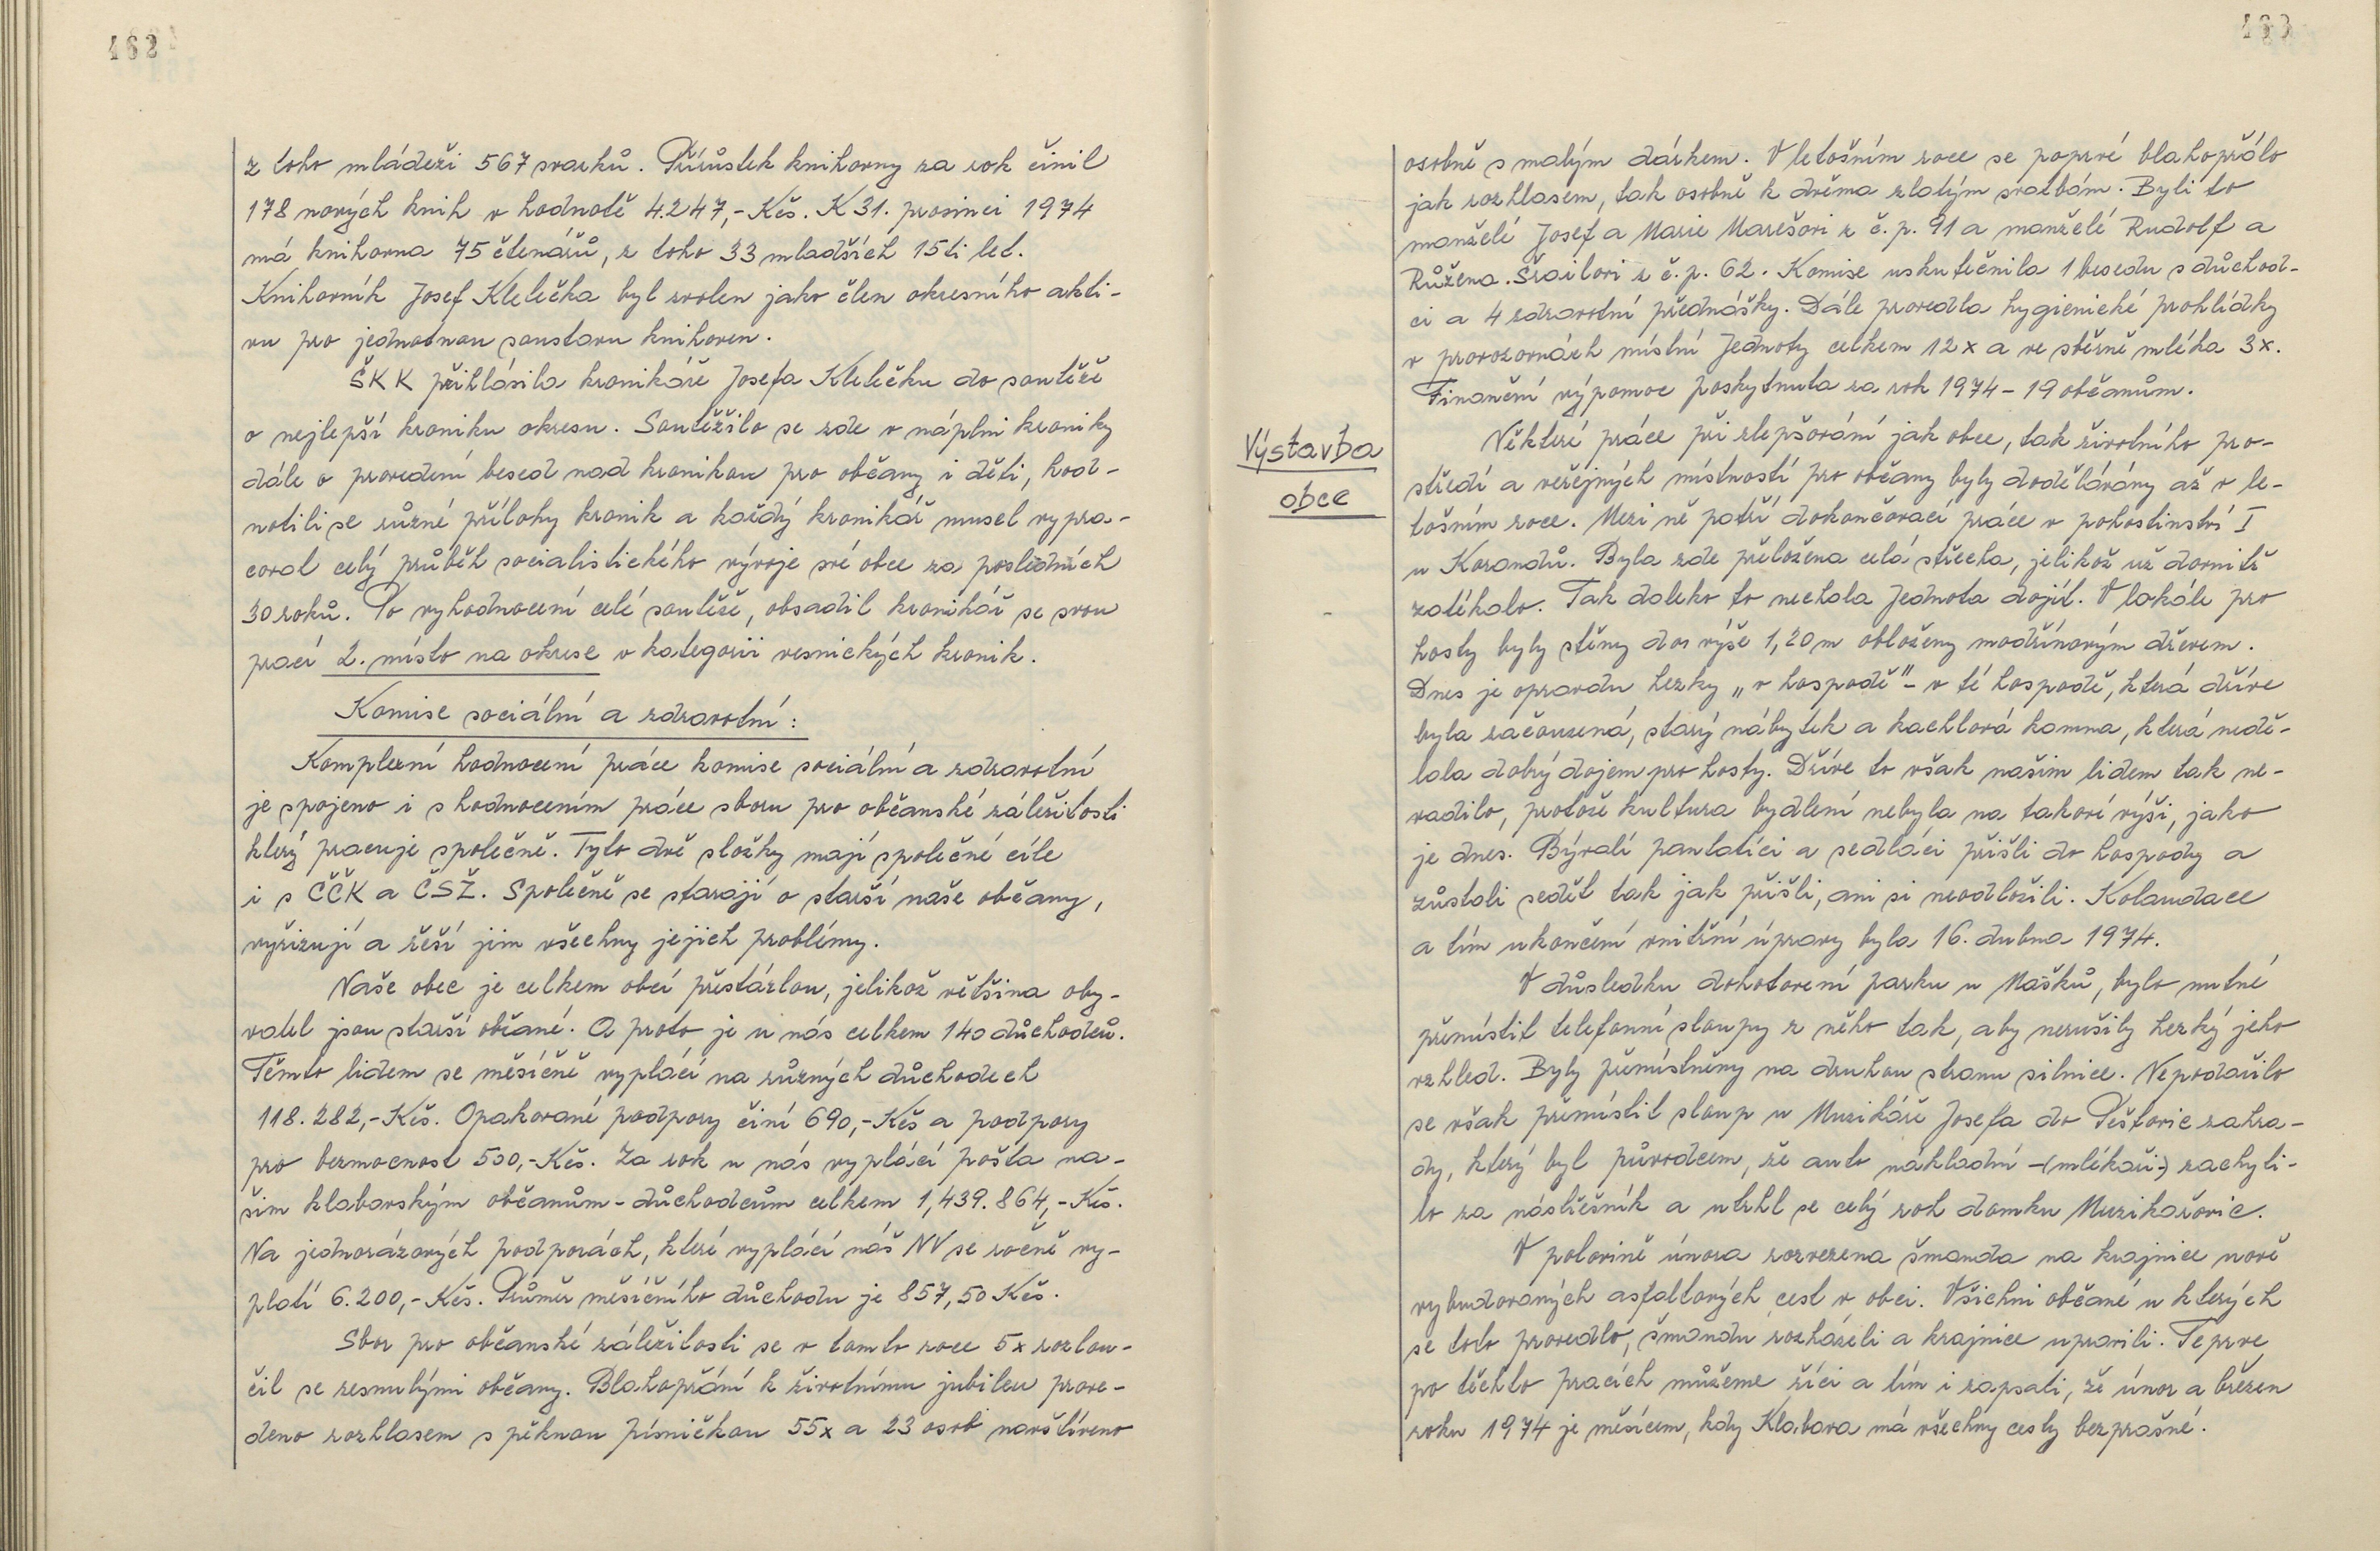 162
z toho mládeži 567 svazků. Přírůstek knihovny za rok činil
178 nových knih v hodnotě 4.247,- Kčs. K 31. prosinci 1974
má knihovna 75 čtenářů, z toho 33 mladších 15ti let.
Knihovník Josef Klelečka byl zvolen jako člen okresního akti-
vu pro jednotnou soustavu knihoven.
ŠKK přihlásila kronikáře Josefa Klelečku do soutěže
o nejlepší kroniku okresu. Soutěžilo se zde v náplni kroniky
dále o provedení besed nad kronikou pro občany i děti, hod-
notili se různé přílohy kronik a každý kronikář musel vypra-
coval celý průběh socialistického vývoje své obce za posledních
30 roků. Po vyhodnocení celé soutěže, obsadil kronikář se svou
prací 2. místo na okrese v kategorii vesnických kronik.
Komise sociální a zdravotní:
Komplexní hodnocení práce komise sociální a zdravotní
je spojeno i s hodnocením práce sboru pro občanské záležitosti
který pracuje společně. Tyto dvě složky mají společné cíle
i s ČČK a ČSŽ. Společně se starají o starší naše občany,
vyřizují a řeší jim všechny jejich problémy.
Naše obec je celkem obcí přestárlou, jelikož většina oby-
vatel jsou starší občané. A proto je u nás celkem 140 důchodců.
Těmto lidem se měsíčně vyplácí na různých důchodech
118.282,- Kčs. Opakované podpory činí 690,- Kčs a podpory
pro bezmocnost 500,- Kčs. Za rok u nás vyplácí pošta na-
šim klabavským občanům - důchodcům celkem 1,439.864,- Kčs.
Na jednorázových podporách, které vyplácí náš NV se ročně vy-
platí 6.200,- Kčs. Průměr měsíčního důchodu je 857,50 Kčs.
Sbor pro občanské záležitosti se v tomto roce 5x rozlou-
čil se zesnulými občany. Blahopřání k životnímu jubileu prove-
deno rozhlasem s pěknou písničkou 55x a 23 osob navštíveno
163
osobně s malým dárkem. V letošním roce se poprvé blahopřálo
jak rozhlasem, tak osobně k dvěma zlatým svatbám. Byli to
manželé Josef a Marie Marešovi z č.p. 91 a manželé Rudolf a
Růžena Švailovi z č.p. 62. Komise uskutečnila 1 besedu s důchod-
ci a 4 zdravotní přednášky. Dále provedla hygienické prohlídky
v provozovnách místní Jednoty celkem 12x a ve sběrně mléka 3x.
Finanční výpomoc poskytnula za rok 1974 - 19 občanům.
Výstavba
obce
Některé práce při zlepšování jak obce, tak životního pro-
středí a veřejných místností pro občany byly dodělávány až v le-
tošním roce. Mezi ně patří dokončovací práce v pohostinství I
u Korandů. Byla zde přeložena celá střecha, jelikož už dovnitř
zatékalo. Tak daleko to nechala Jednota dojít. V lokále pro
hosty byly stěny do výše 1,20 m obloženy modřínovým dřevem.
Dnes je opravdu hezky „v hospodě" - v té hospodě, která dříve
byla začouzená, starý nábytek a kachlová kamna, která nedě-
lala dobrý dojem pro hosty. Dříve to však našim lidem tak ne-
vadilo, protože kultura bydlení nebyla na takové výši, jako
je dnes. Bývalí pantatíci a sedláci přišli do hospody a
zůstali sedět tak jak přišli, ani si neodložili. Kolaudace
a tím ukončení vnitřní úpravy byla 16. dubna 1974.
V důsledku dohotovení parku u Mašků, bylo nutné
přemístit telefonní sloupy z něho tak, aby nerušily hezký jeho
vzhled. Byly přemístněny na druhou stranu silnice. Nepodařilo
se však přemístit sloup u Muzikáře Josefa do Peštovic zahra-
dy, který byl původcem, že auto nákladní -(mlékaři-) zachyli-
lo za nástřešník a utrhl se celý roh domku Muzikařovic.
V polovině února rozvezena šmanda na krajnice nově
vybudovaných asfaltových cest v obci. Všichni občané u kterých
se toto provedlo, šmandu rozházeli a krajnice upravili. Teprve
po těchto pracích můžeme říci a tím i zapsati, že únor a březen
roku 1974 je měsícem, kdy Klabava má všechny cesty bezprašné.